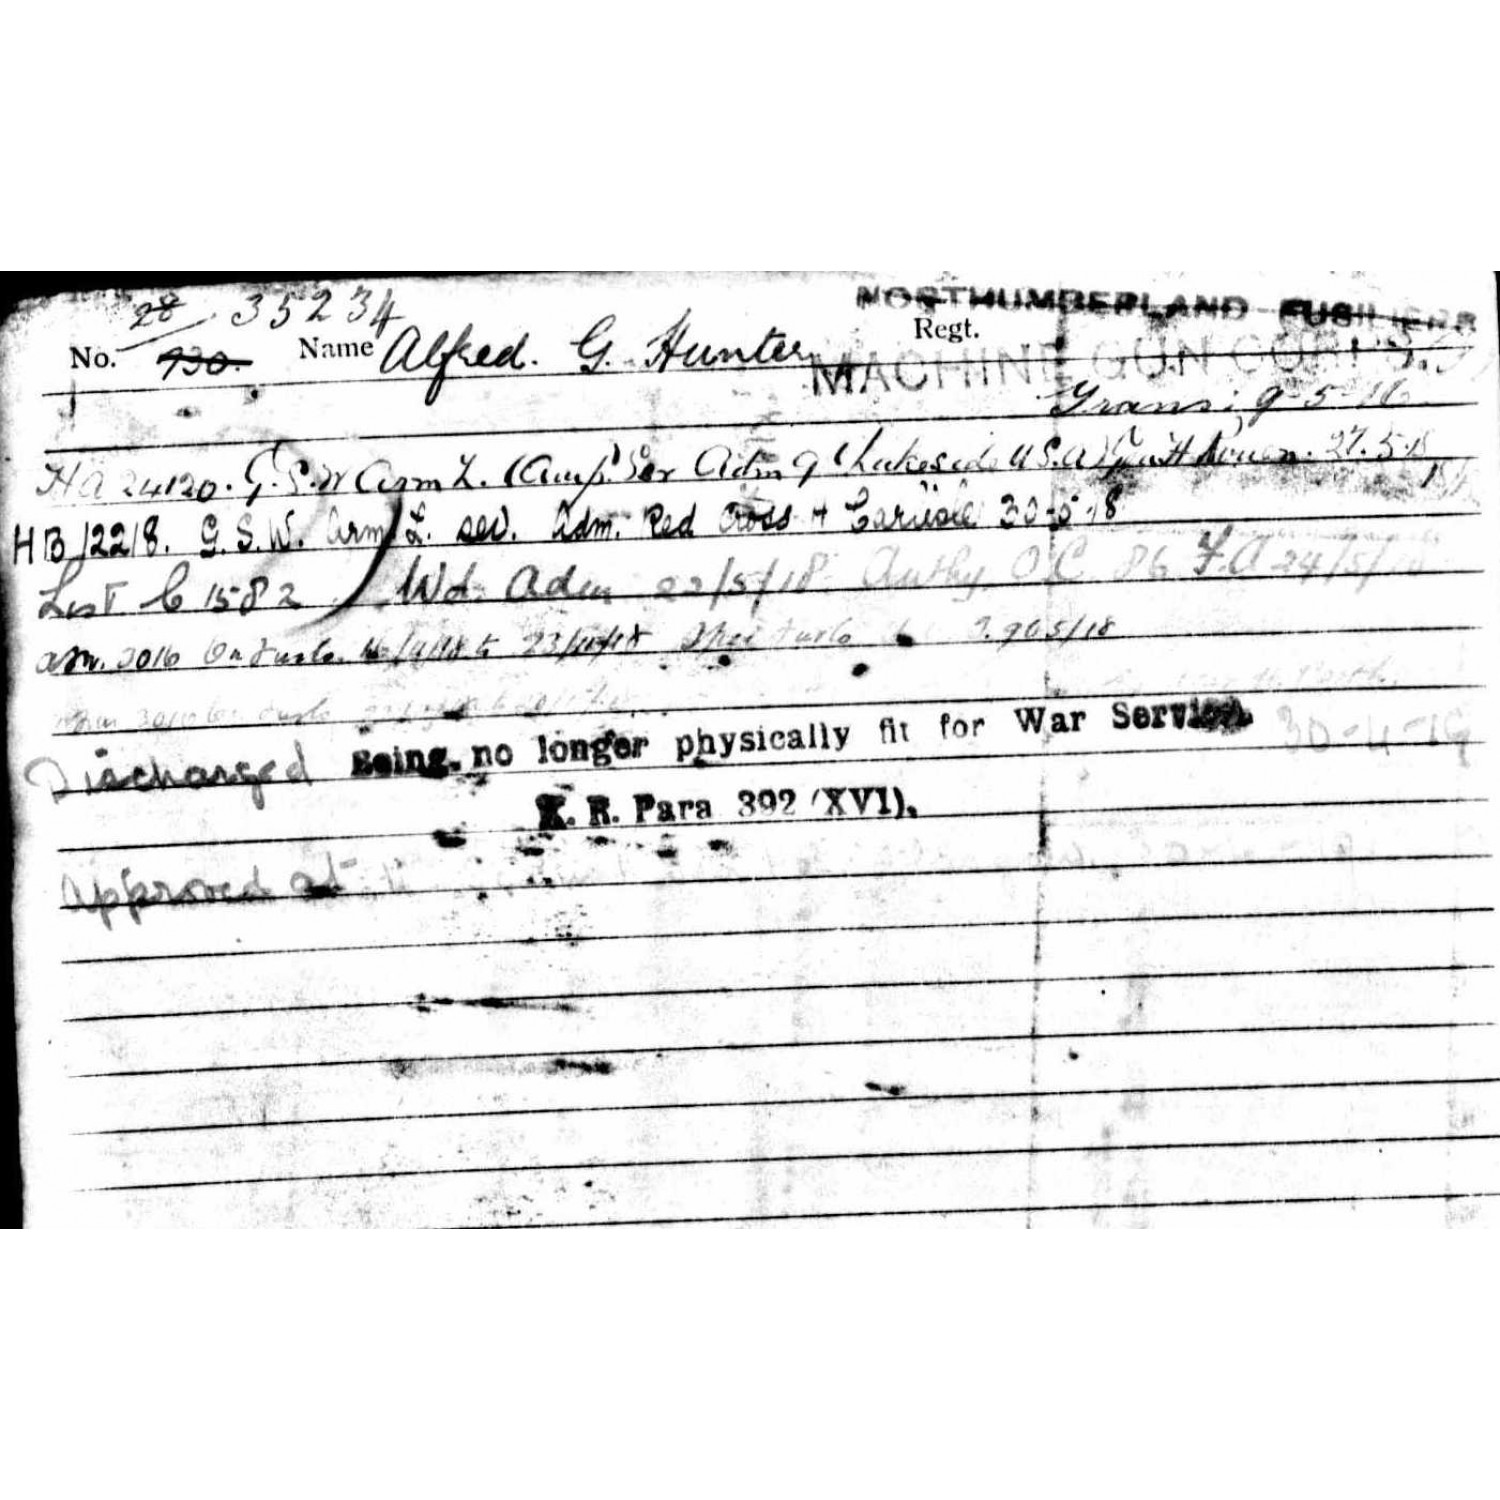 28/ 35234 NORTHUMBERLAND FUSILIERS
No. 930. Name Alfred. G. Hunter Regt.
MACHINE GUN CORPS.
Trans: 9-5-16
HA 24120. G.S.W Arm L. (Amp) Sev Adm 9 (Lakeside U.S.A) Gen H Rouen. 27.5.18
HB 12218. G.S.W. Arm L. sev. Adm. Red Cross H Carlisle 30-5-18
List C 1582 Wd. Adm 22/5/18. Authy O C 86 F.A 24/5/18
2016 On Furlo. to 23/11/18
Discharged Being no longer physically fit for War Service 30-4-19
K. R. Para 392 (XVI).
Approved at